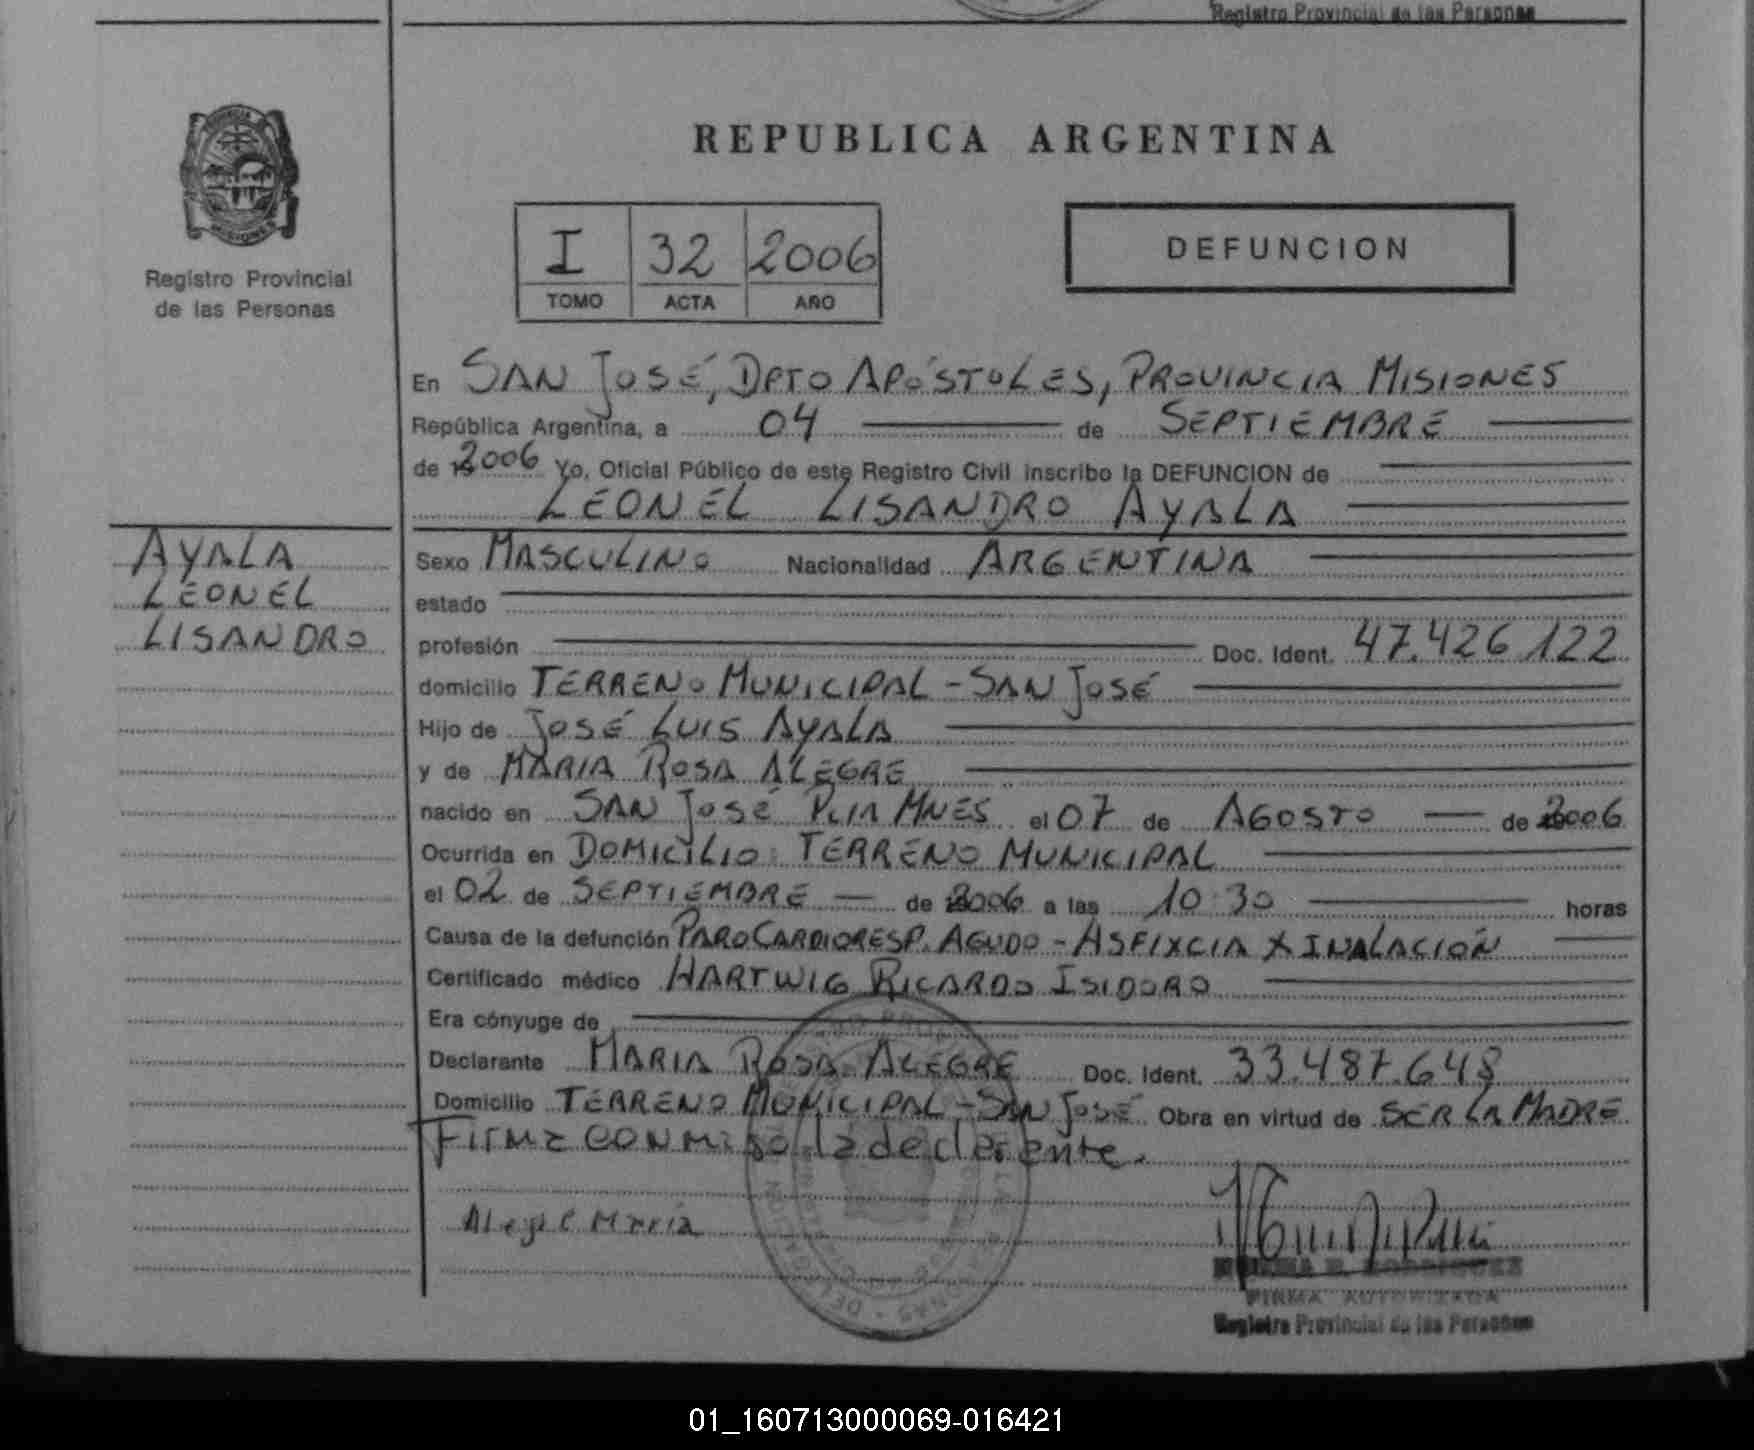 Registro Provincial de las Personas
MISIONES
Registro Provincial
de las Personas
REPUBLICA ARGENTINA
I 32 2006
TOMO ACTA AÑO
DEFUNCION
En SAN JOSÉ, DPTO APÓSTOLES, PROVINCIA MISIONES
República Argentina, a 04 de SEPTIEMBRE
de 2006 Yo, Oficial Público de este Registro Civil inscribo la DEFUNCION de
LEONEL LISANDRO AYALA
AYALA
LEONEL
LISANDRO
Sexo MASCULINO Nacionalidad ARGENTINA
estado
profesión Doc. Ident. 47.426.122
domicilio TERRENO MUNICIPAL - SAN JOSÉ
Hijo de JOSÉ LUIS AYALA
y de MARIA ROSA ALEGRE
nacido en SAN JOSÉ PCIA MNES el 07 de AGOSTO de 2006
Ocurrida en DOMICILIO: TERRENO MUNICIPAL
el 02 de SEPTIEMBRE de 2006 a las 10:30 horas
Causa de la defunción PARO CARDIORESP. AGUDO - ASFIXCIA X INALACIÓN
Certificado médico HARTWIG RICARDO ISIDORO
Era cónyuge de
Declarante MARIA ROSA ALEGRE Doc. Ident. 33.487.648
Domicilio TERRENO MUNICIPAL - SAN JOSÉ Obra en virtud de SER LA MADRE
Firma conmigo la declarante.
Alegre María
NORMA B. RODRIGUEZ
FIRMA AUTORIZADA
Registro Provincial de las Personas
01_160713000069-016421